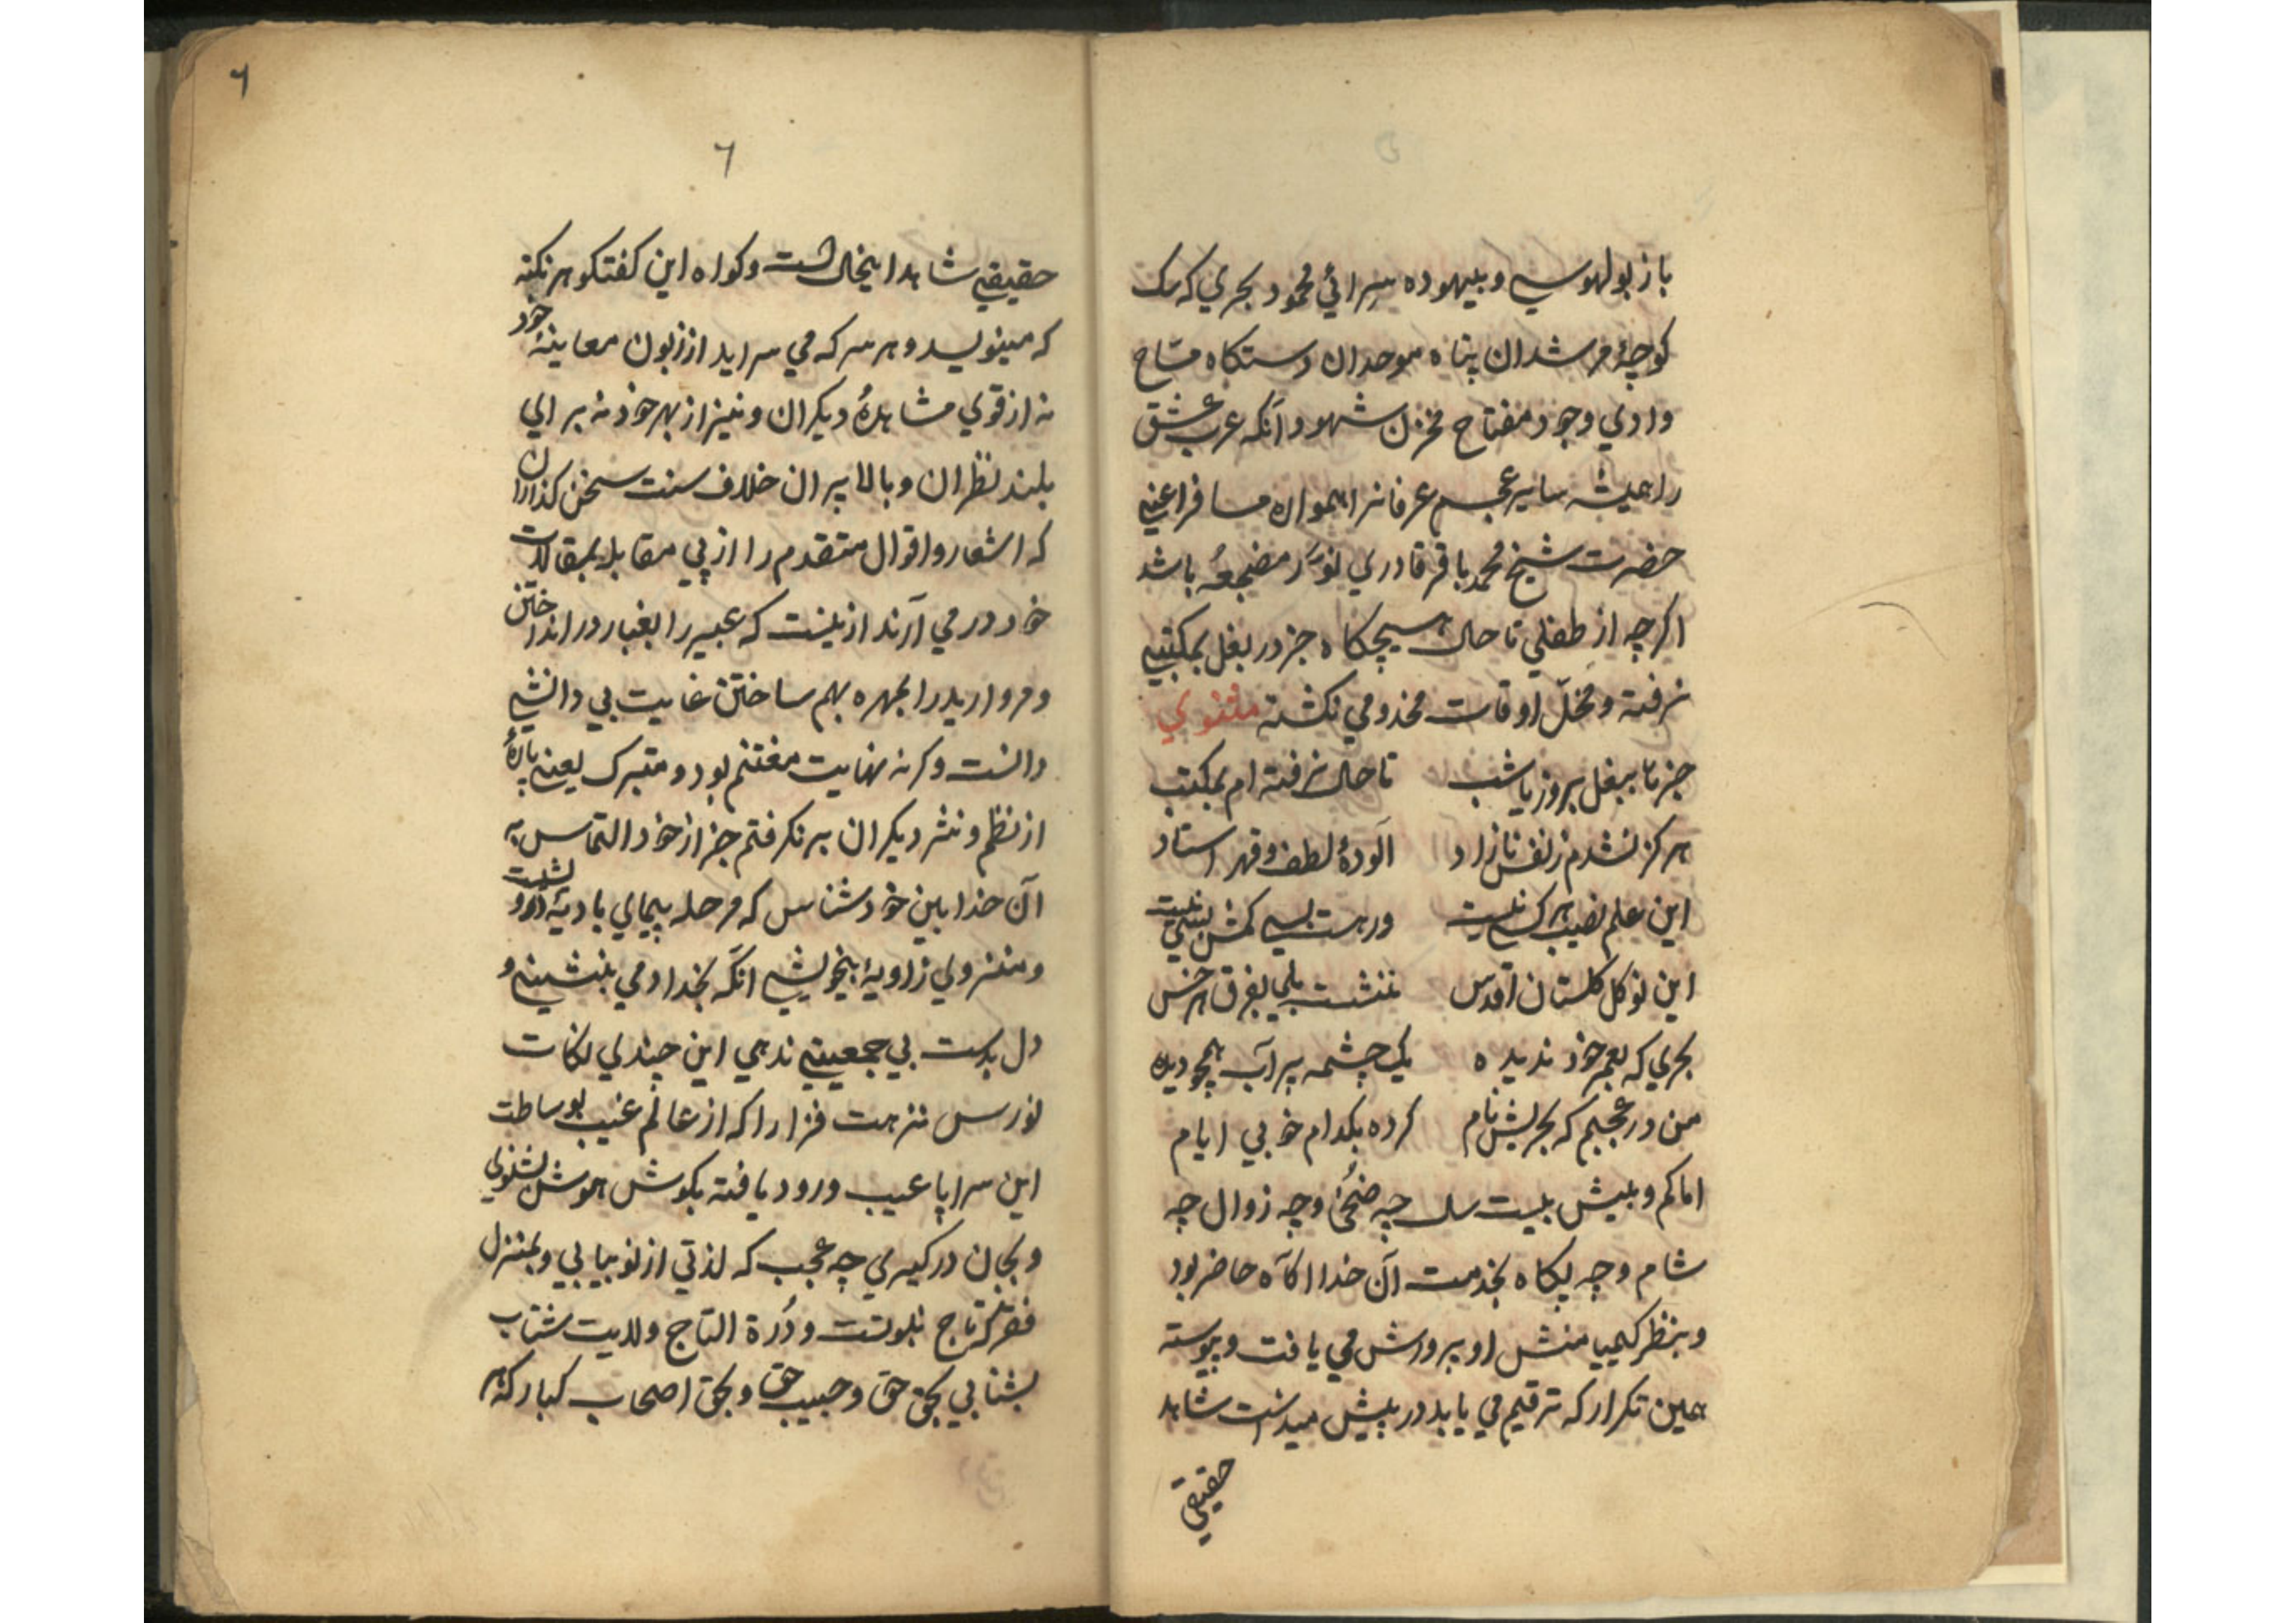 باز بولهوسي و بيهوده سرائي محمود بحري كه سك
كوچۀ مرشدان پناه موحدان دستكاه مسّاح
وادي وجود مفتاح مخزن شهود آنكه عرب عشق
را هميشه ساير عجم عرفانرا همواره مسافر اعني
حضرت شيخ محمد باقر قادري نوّر مضجعه باشد
اكرچه از طفلي تا حال هيچكاه جز در بغل بمكتبي
نرفته و مخلّ اوقات مخدومي نكشته مثنوي
جز تا ببغل بروز يا شب تا حال نرفته ام بمكتب
هركز نشدم ز نفس نازاد آلودۀ لطف و قهر استاد
اين علم نصيب هر كسي نيست ور هست بسي كمش بسي نيست
اين نوكل كلستان اقدس ننشست بلي بفرق هر خس
بحري كه بعمر خود نديده يك چشمه پر آب همچو ديده
من در عجبم كه بحريش نام كرده بكدام خوبي ايام
اما كم و بيش بيست سال چه ضُحىٰ و چه زوال چه
شام و چه پكاه بخدمت آن خدا اكآه حاضر بود
و بنظر كيميا منش او پرورش مي يافت و پيوسته
همين تكرار كه ترقيم مي يابد در پيش ميداشت شاهد
حقيقي
٦
٦
حقيقي شاهد اينحال است و كواه اين كفتكو هر نكته
كه مينويسد و هر سر كه مي سرايد از زبون معاينۀ خود
نه از قوي مشاهدۀ ديكران و نيز از بهر خود نه براي
بلند نظران و بالا پران خلاف سنت سخن كذاران
كه اشعار و اقوال متقدم را از پي مقابله بمقالات
خود در مي آرند ازينست كه عبير را بغبار در انداختن
و مرواريد را بمهره بهم ساختن غايت بي دانشي
دانست وكرنه نهايت مغتنم بود و متبرك يعني پارۀ
از نظم و نثر ديكران بر نكرفتم جز از خود التماس به
آن خدا بين خود شناس كه مرحله پيماي باديۀ
و منزوي زاويۀ بيخويشي آنكه بخدا دمي بنشيني و
دل بدست بي جمعيتي ندهي اين چندي نكات
نورس نزهت فزا را كه از عالم غيب بوساطت
اين سراپا عيب ورود يافته بكوش هوش بشنوي
و بجان در كيري چه عجب كه لذتي از نو بيابي و بمنزل
فقر كه تاج نبوتست و دُرة التاج ولايت شتاب
بشتابي بحق حق و حبيب حق و بحق اصحاب كبار كه هر